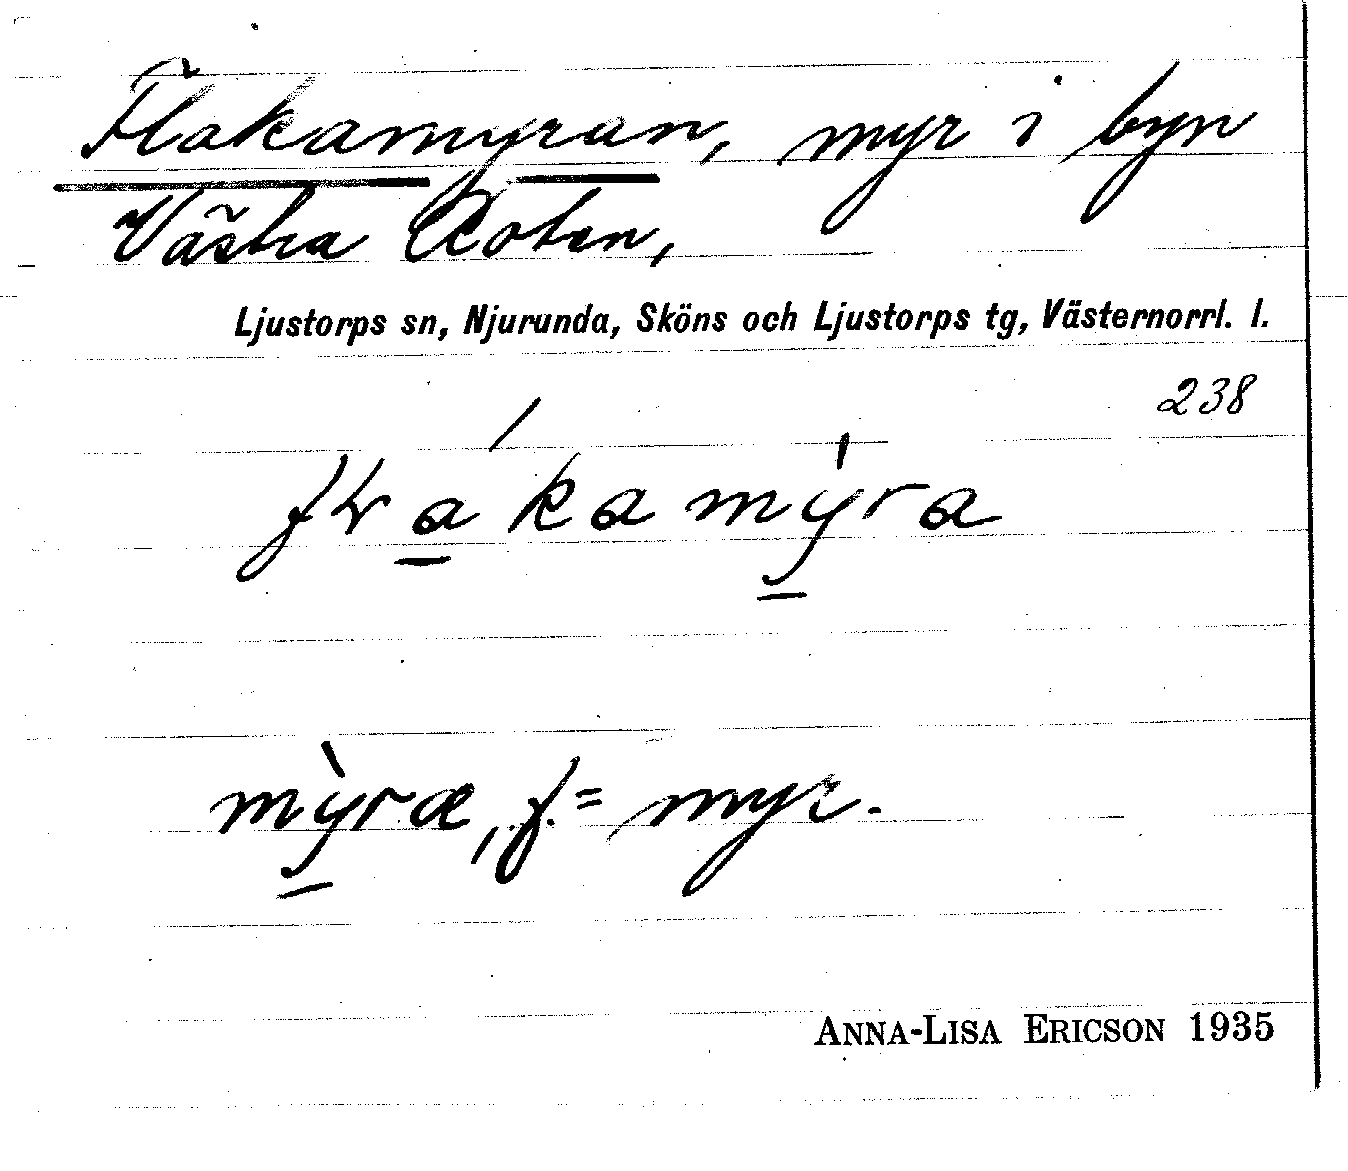 Flakamyran, myr i byn
Västra Roten,
Ljustorps sn, Njurunda, Sköns och Ljustorps tg, Västernorrl. l.
238
mỳræ, f. = myr.
ANNA-LISA ERICSON 1935